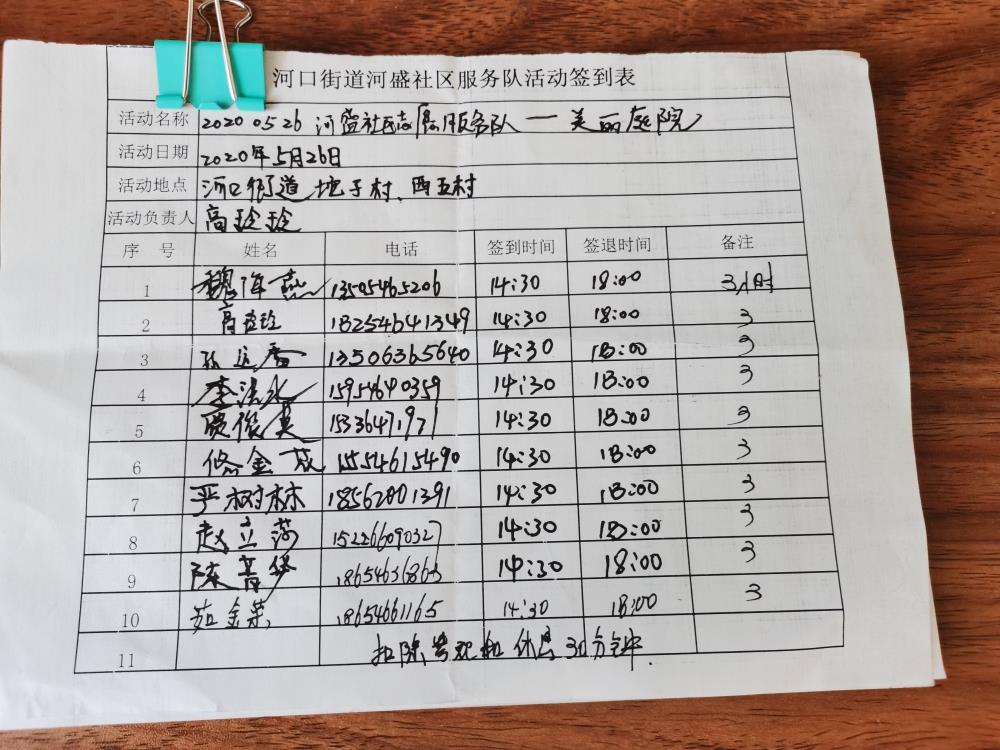 河口街道河盛社区服务队活动签到表
活动名称 20200526 河盛社区志愿服务队一美丽庭院
活动日期 2020年5月26日
活动地点 河口街道坨子村、西五村
活动负责人 高玲玲
序号 姓名 电话 签到时间 签退时间 备注
1 魏海燕 13505465206 14:30 18:00 3小时
2 高玲玲 18254641349 14:30 18:00 3
3 13506365640 14:30 18:00 3
4 李法永 15954640359 14:30 18:00 3
5 俊英 15336471971 14:30 18:00 3
6 金茂 15554615490 14:30 18:00 3
7 严树林 18562001391 14:30 18:00 3
8 赵立 152266090327 14:30 18:00 3
9 陈 14:30 18:00 3
10 茹金荣 18654661165 14:30 18:00 3
11 扣除 和休息30分钟.